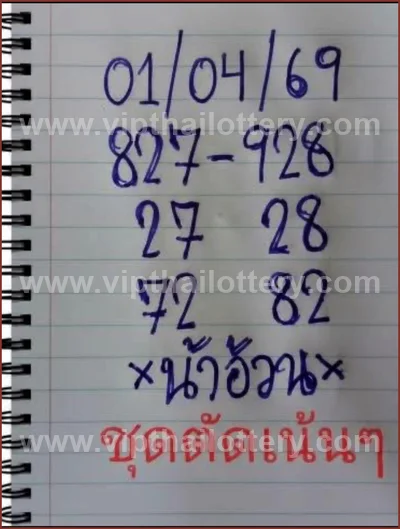 01/04/69
www.vipthailottery.com
827-928
27 28
www.vipthailottery.com
72 82
×น้าอ้วน×
www.vipthailottery.com
ชุดตัดเน้นๆ